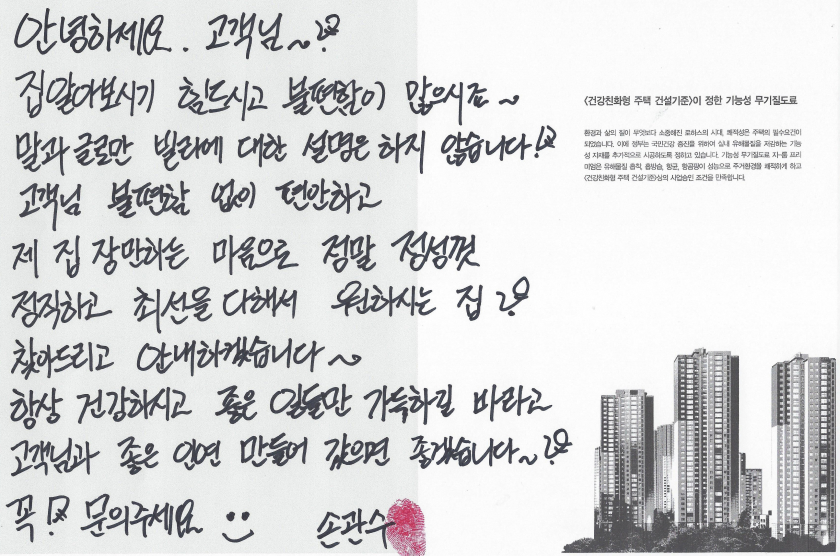 안녕하세요. 고객님~!
집알아보시기 힘드시고 불편함이 많으시죠~
말과 글로만 빌라에 대한 설명은 하지 않습니다!
고객님 불편함 없이 편안하고
제 집 장만하는 마음으로 정말 정성껏
정직하고 최선을 다해서 원하시는 집!
찾아드리고 안내하겠습니다~
항상 건강하시고 좋은 일들만 가득하길 바라고
고객님과 좋은 인연 만들어 갔으면 좋겠습니다~!
꼭! 문의주세요
손관수
<건강친화형 주택 건설기준>이 정한 기능성 무기질도료
환경과 삶의 질이 무엇보다 소중해진 로하스의 시대, 쾌적성은 주택의 필수요건이
되었습니다. 이에 정부는 국민건강 증진을 위하여 실내 유해물질을 저감하는 기능
성 자재를 추가적으로 시공하도록 정하고 있습니다. 기능성 무기질도료 자-룸 프리
미엄은 유해물질 흡착, 흡방습, 항균, 항곰팡이 성능으로 주거환경을 쾌적하게 하고
<건강친화형 주택 건설기준>상의 사업승인 조건을 만족합니다.